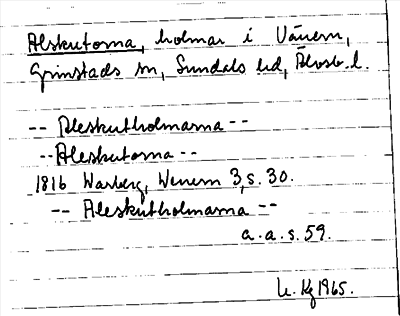 Alskutorna, holmar i Vänern,
Grinstads sn, Sundals hd, Älvsb. l.
-- Aleskutholmarna --
-- Aleskutorna --
1816 Warberg, Wenern 3, s. 30.
-- Aleskutholmarna --
a.a.s. 59.
1965.